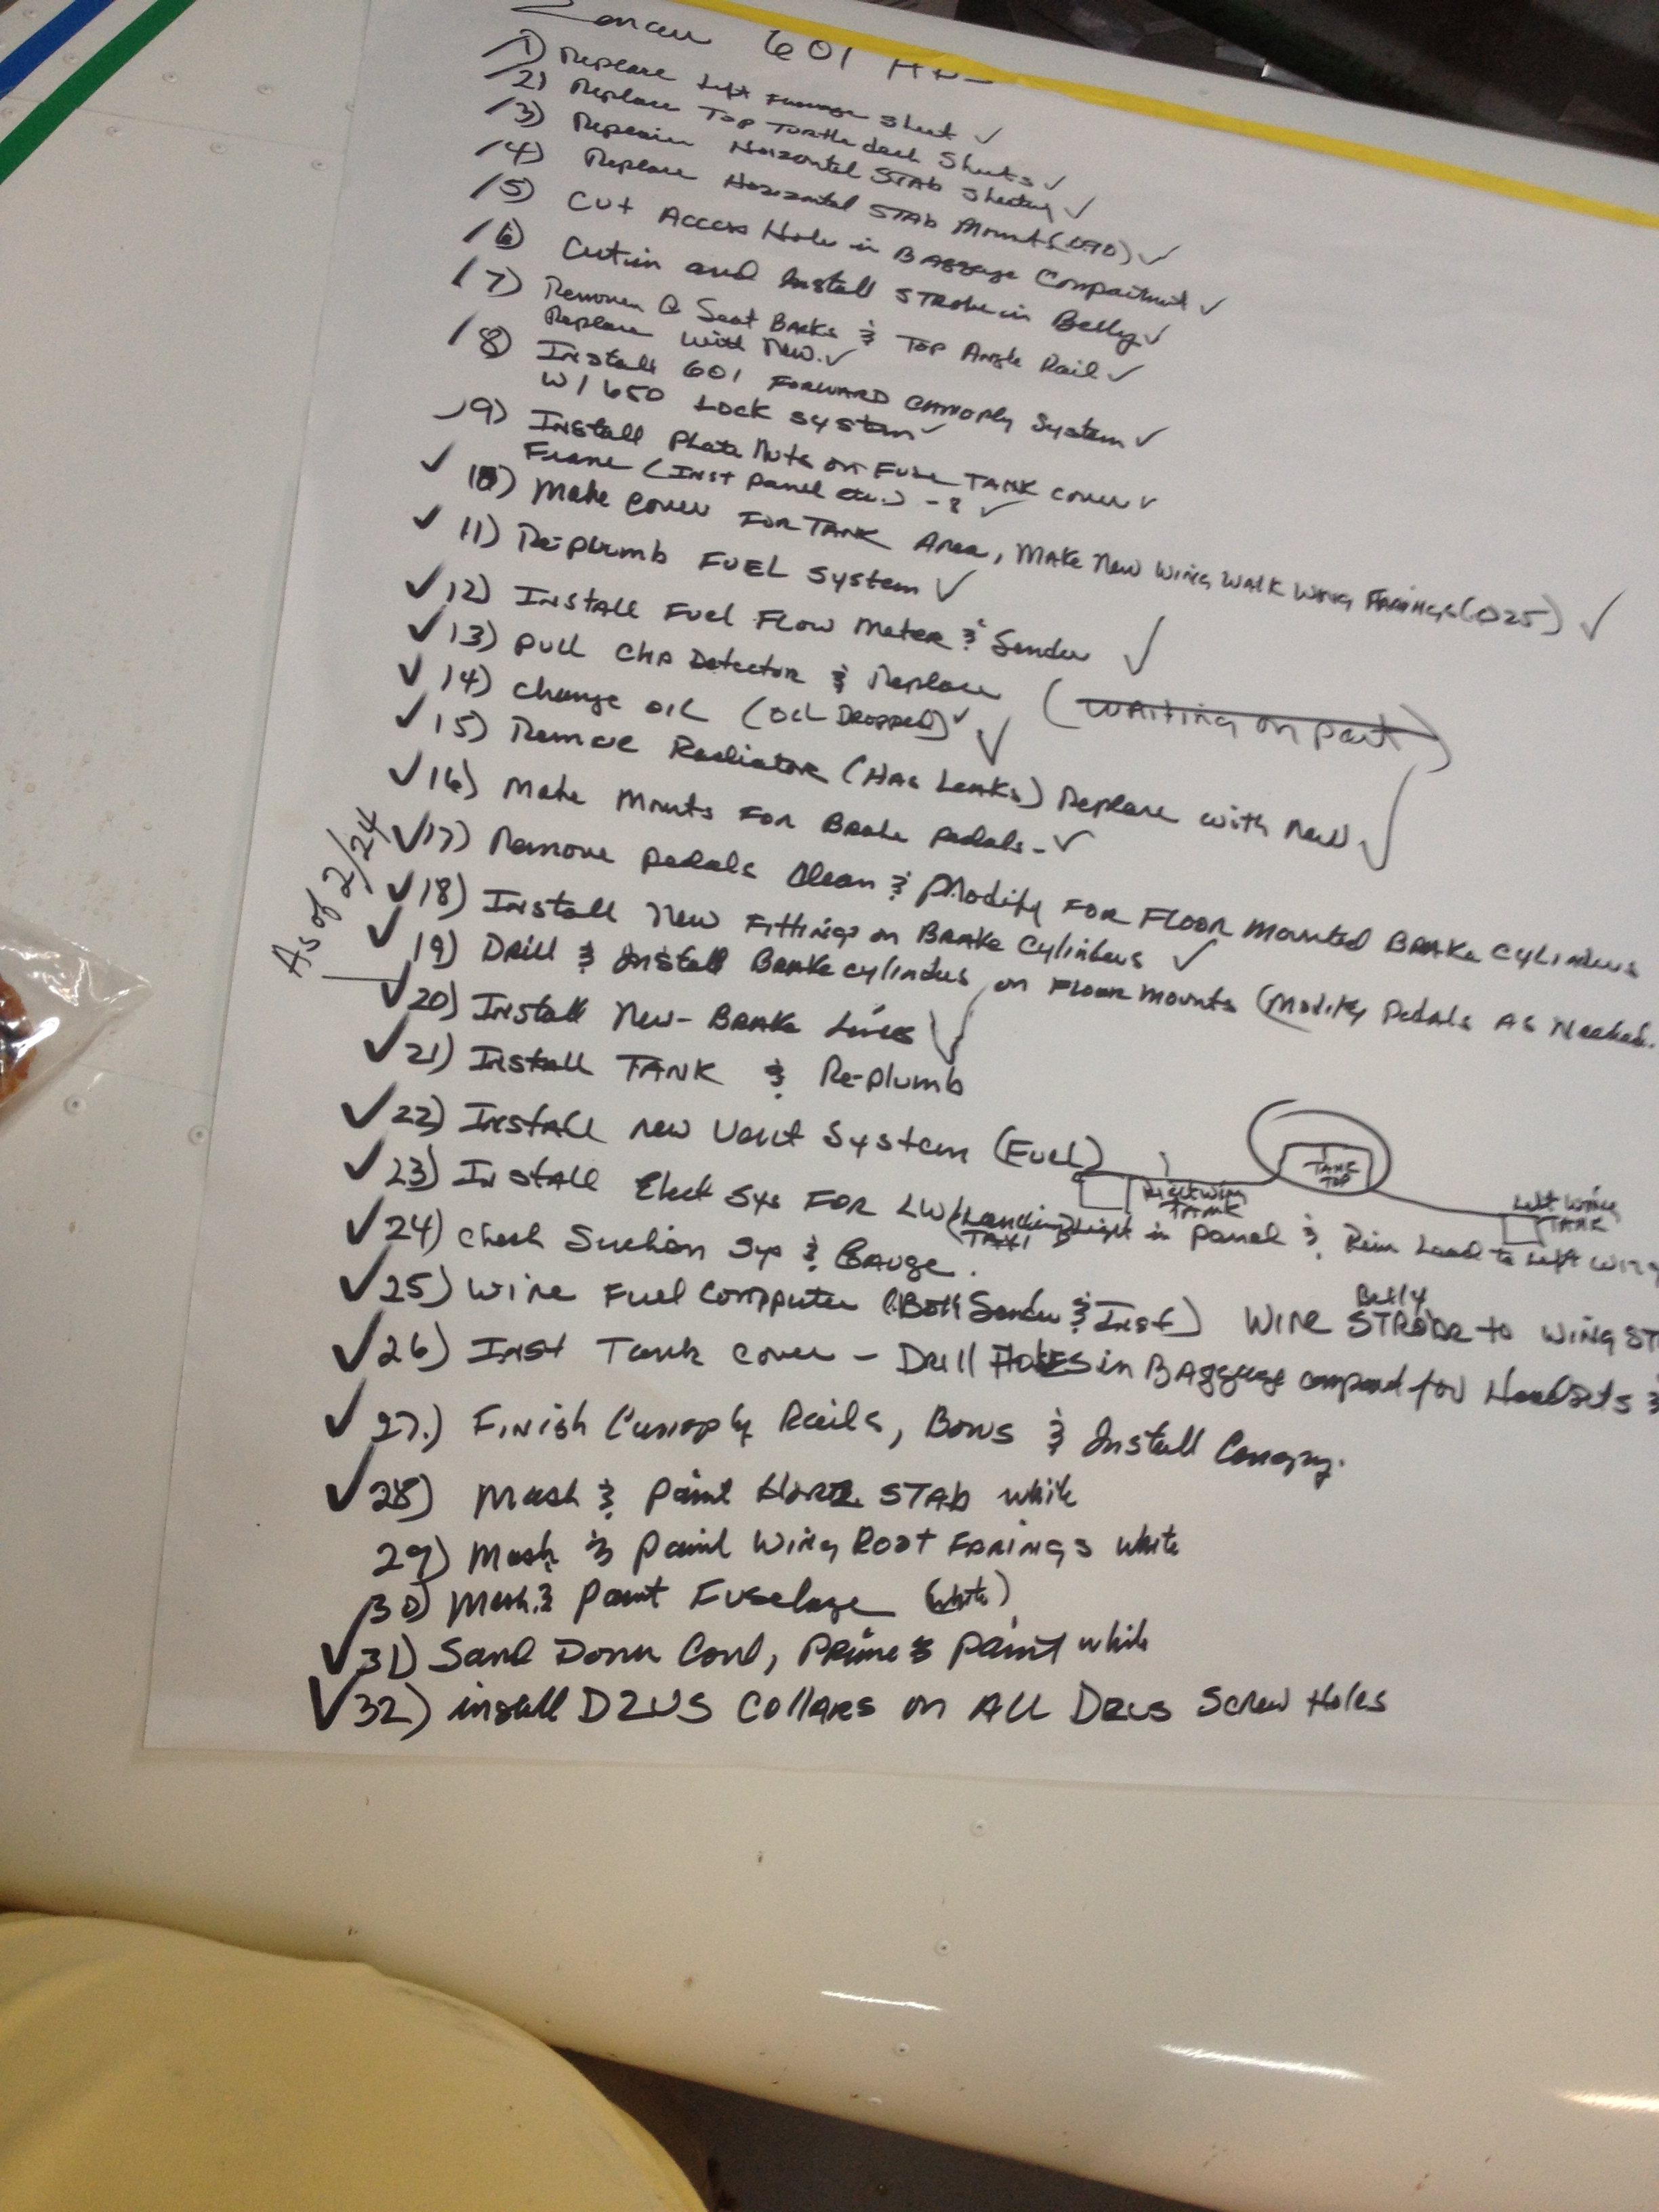 601
/1) Replace Left Fuseage sheet ✓
/2) Replace Top Turtle deck Sheets ✓
/3) Horizontal STAB Sheeting ✓
/4) Replace Horizontal STAB Mounts (.090) ✓
/5) Cut Access Hole in BAggage Compartment ✓
/6) and Install STRobe in Belly ✓
/7) Remove Seat BAcks & Top Angle Rail ✓
Replace with New. ✓
/8) Install 601 FORWARD CANOPY System ✓
W/ 650 Lock system ✓
/9) Install Plate Nuts on Fuel TANK cover ✓
Frame (Inst panel etc.) - 8 ✓
✓ 10) Make cover FOR TANK Area, MAKE New WING WALK WING FARINGS (.025) ✓
✓ 11) Re-plumb FUEL System ✓
✓ 12) INSTALL Fuel Flow Meter & Sender ✓
✓ 13) PULL CHIP Detector & Replace (WAITING on part)
✓ 14) Change OIL (OIL DROPPED) ✓ ✓
✓ 15) Remove Radiator (HAs Leaks) Replace with New ✓
✓ 16) Make Mounts FOR Brake pedals - ✓
✓ 17) Remove pedals Clean & Modify FOR FLOOR mounted BRAKE CYLINDERS
✓ 18) Install New Fittings on BRAKE Cylinders ✓
✓ 19) Drill & Install Brake cylinders on FLOOR mounts (Modify Pedals As Needed.
As of 2/24
✓ 20) Install New - BRAKE Lines ✓
✓ 21) Install TANK & Re-plumb
✓ 22) INSTALL new Vent System (Fuel)
Right Wing TANK
TANK TOP
Left Wing TANK
✓ 23) INSTALL Elect Sys FOR LW (Landing TAXI) Light in panel & Run Lead to Left wing
✓ 24) Check Suction Sys & Gauge.
✓ 25) Wire Fuel Computer (Both Sender & Inst) WIRE Belly STROBE to WING ST
✓ 26) Inst Tank cover - Drill HOLES in BAggage for Headsets &
✓ 27.) FINISH Canopy Rails, Bows & Install Canopy.
✓ 28) Mask & Paint HORIZ STAB white
29) Mask & Paint Wing ROOT FARINGS white
30) Mask & Paint Fuselage (white)
✓ 31) Sand Down Cowl, PRIME & PAINT white
✓ 32) install DZUS Collars on ALL DZUS Screw Holes